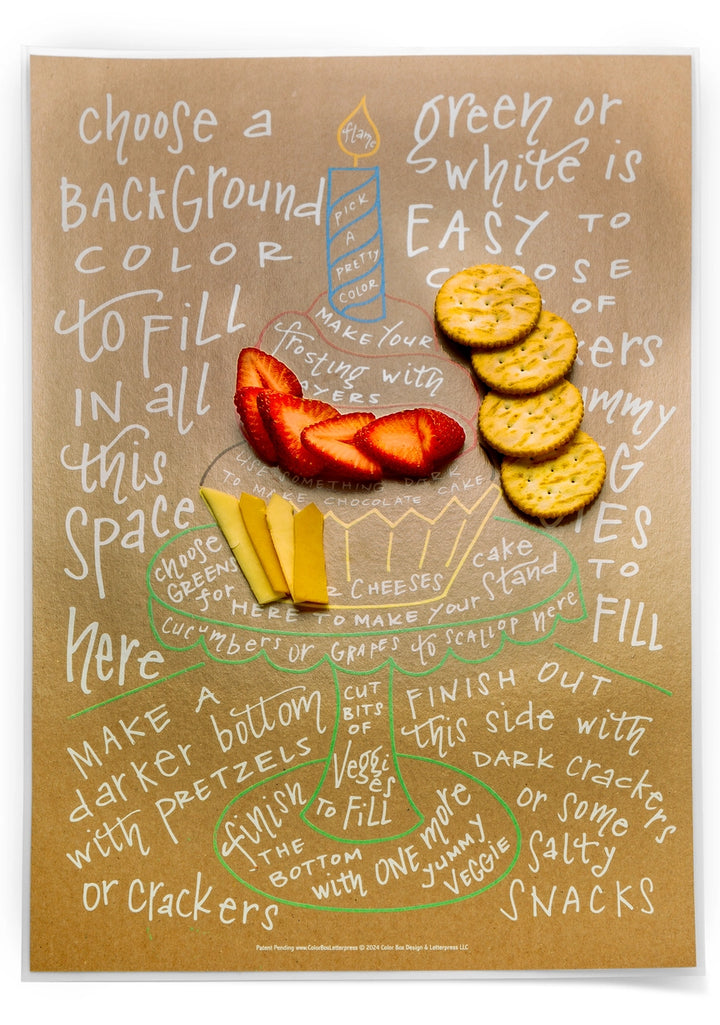 choose a
BACKGROUND
COLOR
to FILL
IN all
this
SPACE
here
flame
PICK
A
PRETTY
COLOR
green or
white is
EASY TO
OF
TO
FILL
MAKE YOUR
frosting with
AYERS
USE SOMETHING DARK
TO MAKE CHOCOLATE CAKE
choose
GREENS
for
CHEESES
HERE TO MAKE YOUR
cake
Stand
CUCUMBERS OR GRAPES to SCALLOP here
MAKE A
darker bottom
with PRETZELS
or crackers
CUT
BITS
OF
Veggies
TO Fill
finish
THE
BOTTOM
with ONE more
yummy
VEGGIE
FINISH OUT
this side with
DARK crackers
or some
Salty
SNACKS
Patent Pending www.ColorBoxLetterpress © 2024 Color Box Design & Letterpress LLC